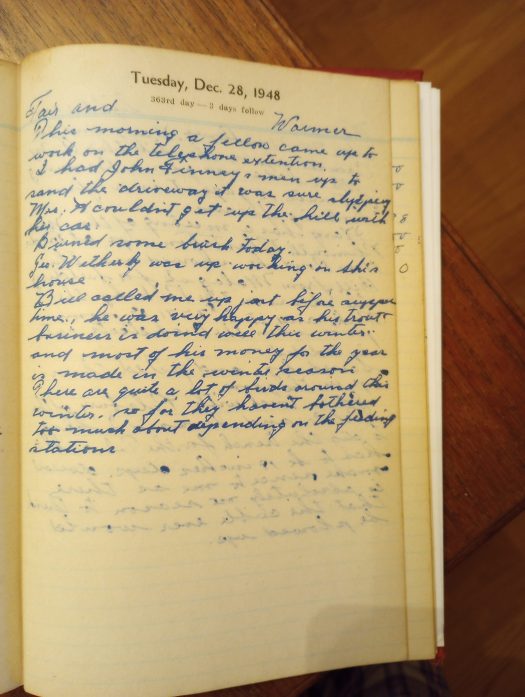 Tuesday, Dec. 28, 1948
363rd day — 3 days follow
Fair and Warmer
This morning a fellow came up to
work on the telephone extention.
I had John Finney's men up to
sand the driveway it was sure slippery
Mrs. A couldn't get up the hill with
her car.
Burned some brush today.
Geo. Witherly was up working on this
house
Bill called me up just before supper
time. he was very happy as his trout
business is doing well this winter.
and most of his money for the year
is made in the winter season.
There are quite a lot of birds around this
winter. so far they haven't bothered
too much about depending on the feeding
stations